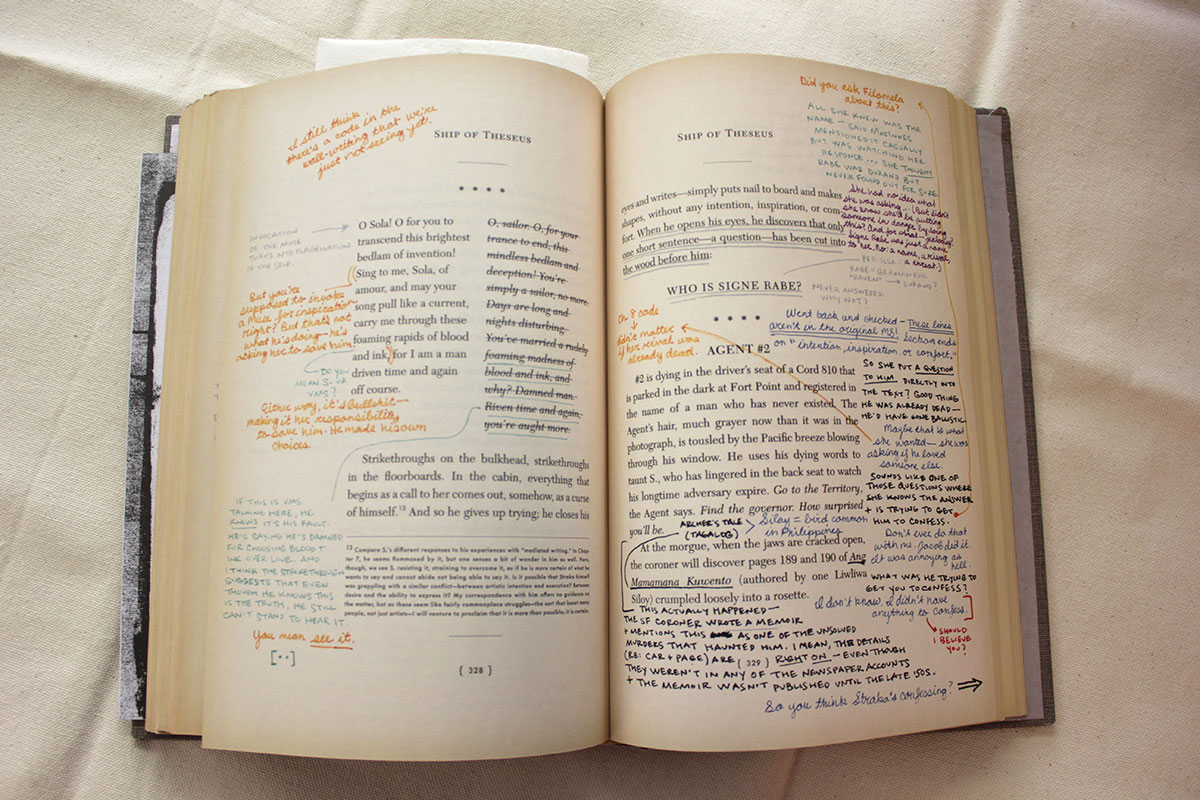 I still think
there's a code in the
wall-writing that we're
just not seeing yet.
SHIP OF THESEUS
INVOCATION
OF THE MUSE
TURNS INTO FLAGELLATION
OF THE SELF.
O Sola! O for you to
transcend this brightest
bedlam of invention!
Sing to me, Sola, of
amour, and may your
song pull like a current,
carry me through these
foaming rapids of blood
and ink, for I am a man
driven time and again
off course.
O, sailor. O, for your
trance to end, this
mindless bedlam and
deception! You're
simply a sailor, no more.
Days are long and
nights disturbing.
You've married a rudely,
foaming madness of
blood and ink, and
why? Damned man.
Riven time and again,
you're aught more.
But you're
supposed to invoke
a Muse for inspiration,
right? But that's not
what he's doing—he's
asking her to save him.
DO YOU
MEAN S. OR
VMS?
Either way, it's bullshit—
making it her responsibility
to save him. He made his own
choices.
Strikethroughs on the bulkhead, strikethroughs
in the floorboards. In the cabin, everything that
begins as a call to her comes out, somehow, as a curse
of himself.13 And so he gives up trying; he closes his
IF THIS IS VMS
TALKING HERE, HE
KNOWS IT'S HIS FAULT.
HE'S SAYING HE'S DAMNED
FOR CHOOSING BLOOD +
INK OVER LOVE. AND
I THINK THE STRIKETHROUGH
SUGGESTS THAT EVEN
THOUGH HE KNOWS THIS
IS THE TRUTH, HE STILL
CAN'T STAND TO HEAR IT.
You mean see it.
[··]
13 Compare S.'s different responses to his experiences with "mediated writing." In Chap-
ter 7, he seems flummoxed by it, but one senses a bit of wonder in him as well. Here,
though, we see S. resisting it, straining to overcome it, as if he is more certain of what he
wants to say and cannot abide not being able to say it. Is it possible that Straka himself
was grappling with a similar conflict—between artistic intention and execution? Between
desire and the ability to express it? My correspondence with him offers no guidance on
the matter, but as these seem like fairly commonplace struggles—the sort that beset many
people, not just artists—I will venture to proclaim that it is more than possible; it is certain.
{ 328 }
SHIP OF THESEUS
Did you ask Filomela
about this?
ALL SHE KNEW WAS THE
NAME — SAID MACINNES
MENTIONED IT CASUALLY
BUT WAS WATCHING HER
RESPONSE... SHE THOUGHT
RABE WAS DURAND BUT
NEVER FOUND OUT FOR SURE
She had no idea what
she was asking... (But didn't
she know she'd be putting
someone in danger by doing
this? And for what—jealousy?
Signe Rabe was just a name
to her. No: a name, a rival,
a threat.)
eyes and writes—simply puts nail to board and makes
shapes, without any intention, inspiration, or com-
fort. When he opens his eyes, he discovers that only
one short sentence—a question—has been cut into
the wood before him:
RABE = GERMAN FOR
"RAVEN" → DURAND?
WHO IS SIGNE RABE?
NEVER ANSWERED
WHY NOT?
Ch 8 code
↓
didn't matter
if her rival was
already dead.
Went back and checked — These lines
aren't in the original MS! Section ends
on "intention, inspiration or comfort."
AGENT #2
#2 is dying in the driver's seat of a Cord 810 that
is parked in the dark at Fort Point and registered in
the name of a man who has never existed. The
Agent's hair, much grayer now than it was in the
photograph, is tousled by the Pacific breeze blowing
through his window. He uses his dying words to
taunt S., who has lingered in the back seat to watch
his longtime adversary expire. Go to the Territory,
the Agent says. Find the governor. How surprised
you'll be.
ARCHER'S TALE
(TAGALOG)
Silay = bird common
in Philippines
At the morgue, when the jaws are cracked open,
the coroner will discover pages 189 and 190 of Ang
Mamamana Kuwento (authored by one Liwliwa
Siloy) crumpled loosely into a rosette.
SO SHE PUT A QUESTION
TO HIM DIRECTLY INTO
THE TEXT? GOOD THING
HE WAS ALREADY DEAD—
HE'D HAVE GONE BALLISTIC.
Maybe that is what
she wanted—she was
asking if he loved
someone else.
SOUNDS LIKE ONE OF
THOSE QUESTIONS WHERE
SHE KNOWS THE ANSWER
+ IS TRYING TO GET
HIM TO CONFESS.
Don't ever do that
with me. Jacob did it.
It was annoying as
hell.
WHAT WAS HE TRYING TO
GET YOU TO CONFESS?
I don't know. I didn't have
anything to confess.
SHOULD
I BELIEVE
YOU?
THIS ACTUALLY HAPPENED—
THE SF CORONER WROTE A MEMOIR
+ MENTIONS THIS AS ONE OF THE UNSOLVED
MURDERS THAT HAUNTED HIM. I MEAN, THE DETAILS
(RE: CAR + PAGE) ARE RIGHT ON — EVEN THOUGH
{ 329 }
THEY WEREN'T IN ANY OF THE NEWSPAPER ACCOUNTS
+ THE MEMOIR WASN'T PUBLISHED UNTIL THE LATE '50S.
So you think Straka's confessing?